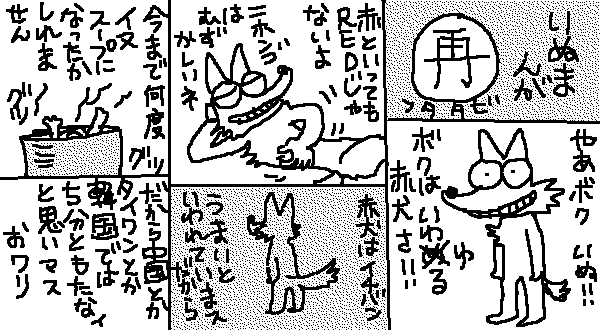 いぬま
んが
再
フタタビ
やあボク
いぬ!!
ボクはいわゆる
赤犬さ!!
赤といっても
REDじゃ
ないよ
ニホンゴ
は
むず
かしいネ
赤犬はイチバン
うまいと
いわれていまス
だから
今まで何度
イヌ
スープに
なったか
しれま
せん
グツ
グツ
だから中国とか
タイワンとか
韓国では
5分ともたなイ
と思いマス
おワリ